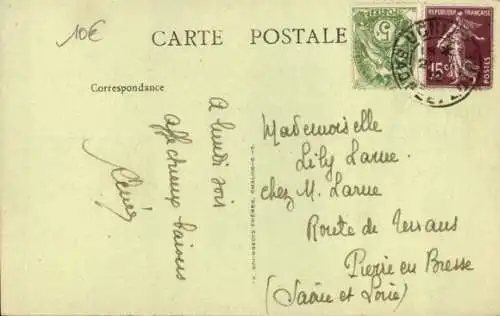 10€
CARTE POSTALE
Correspondance
A lundi soir
affectueux baisers
5
REPUBLIQUE FRANÇAISE
15c
POSTES
BOURGEOIS FRÈRES, CHALON-S-S.
Mademoiselle
Lily Larue
chez M. Larue
Route de
en Bresse
(Saône et Loire)